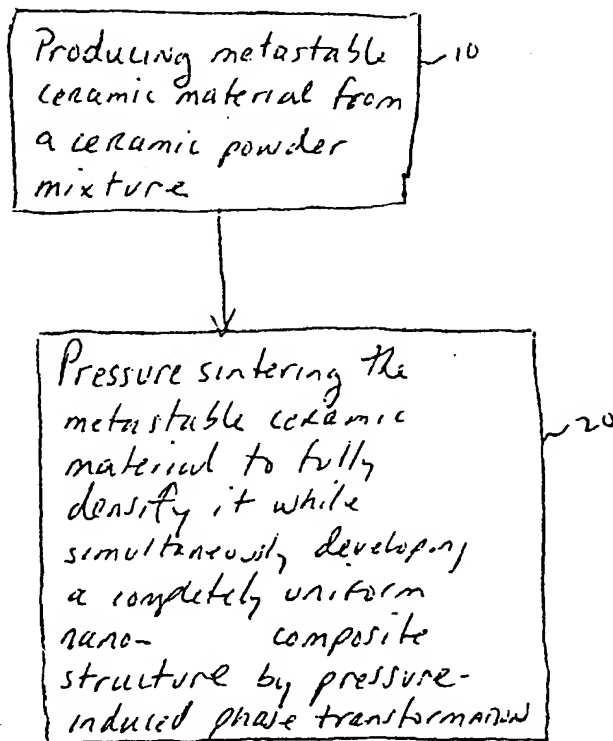 Producing metastable 10
ceramic material from
a ceramic powder
mixture
Pressure sintering the
metastable ceramic 20
material to fully
densify it while
simultaneously developing
a completely uniform
nano- composite
structure by pressure-
induced phase transformation